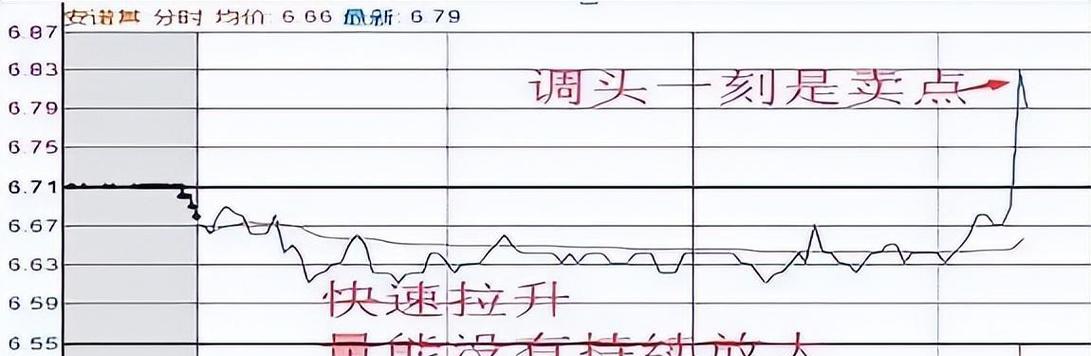 安诺其 分时 均价: 6.66 最新: 6.79
6.87
6.83
调头一刻是卖点
6.79
6.75
6.71
6.67
6.63
快速拉升
6.59
量能没有持续放大
6.55